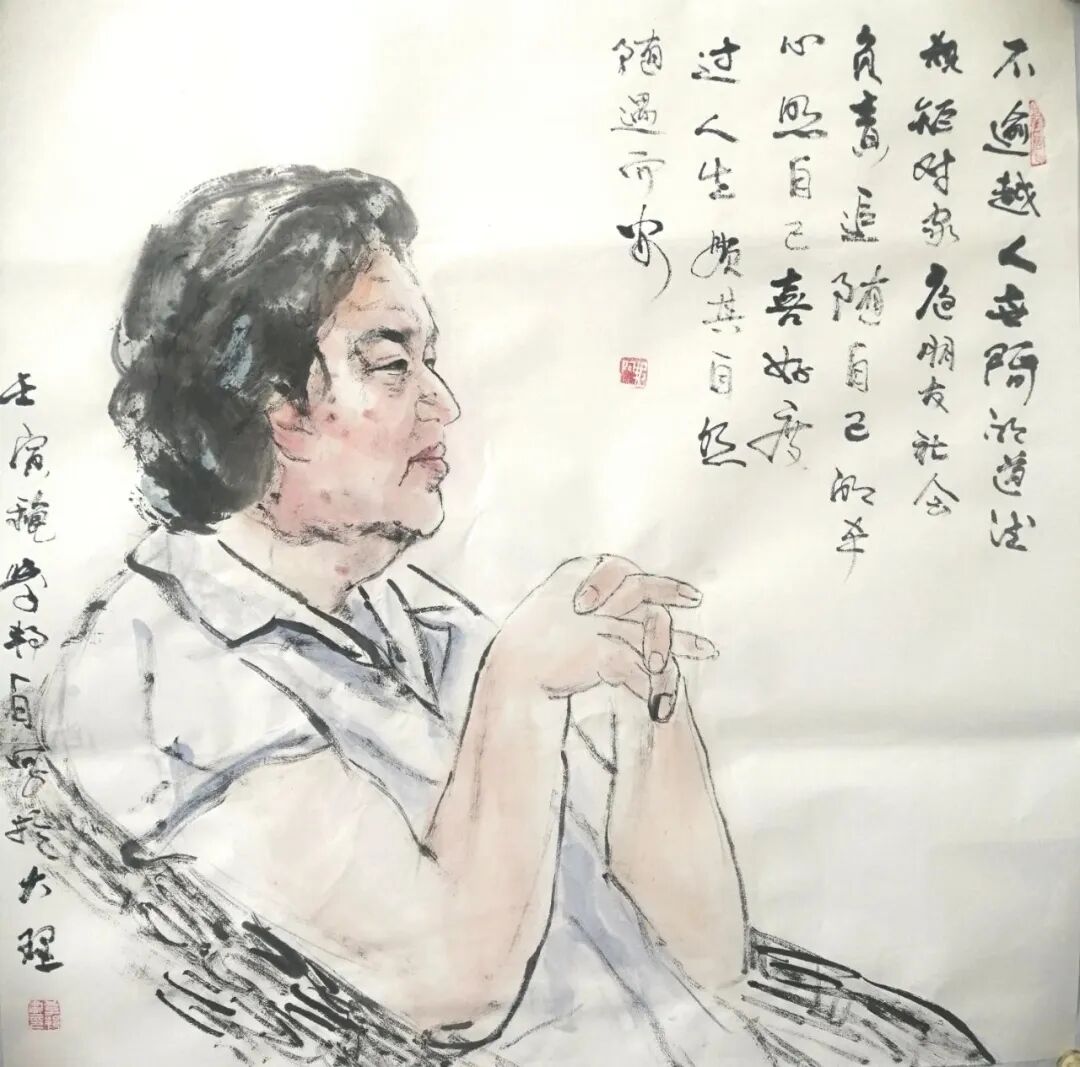 不逾越人世间的道德
规矩对家庭朋友社会
负责追随自己的本
心照自己喜好度
过人生顺其自然
随遇而安
壬寅 自写于大理